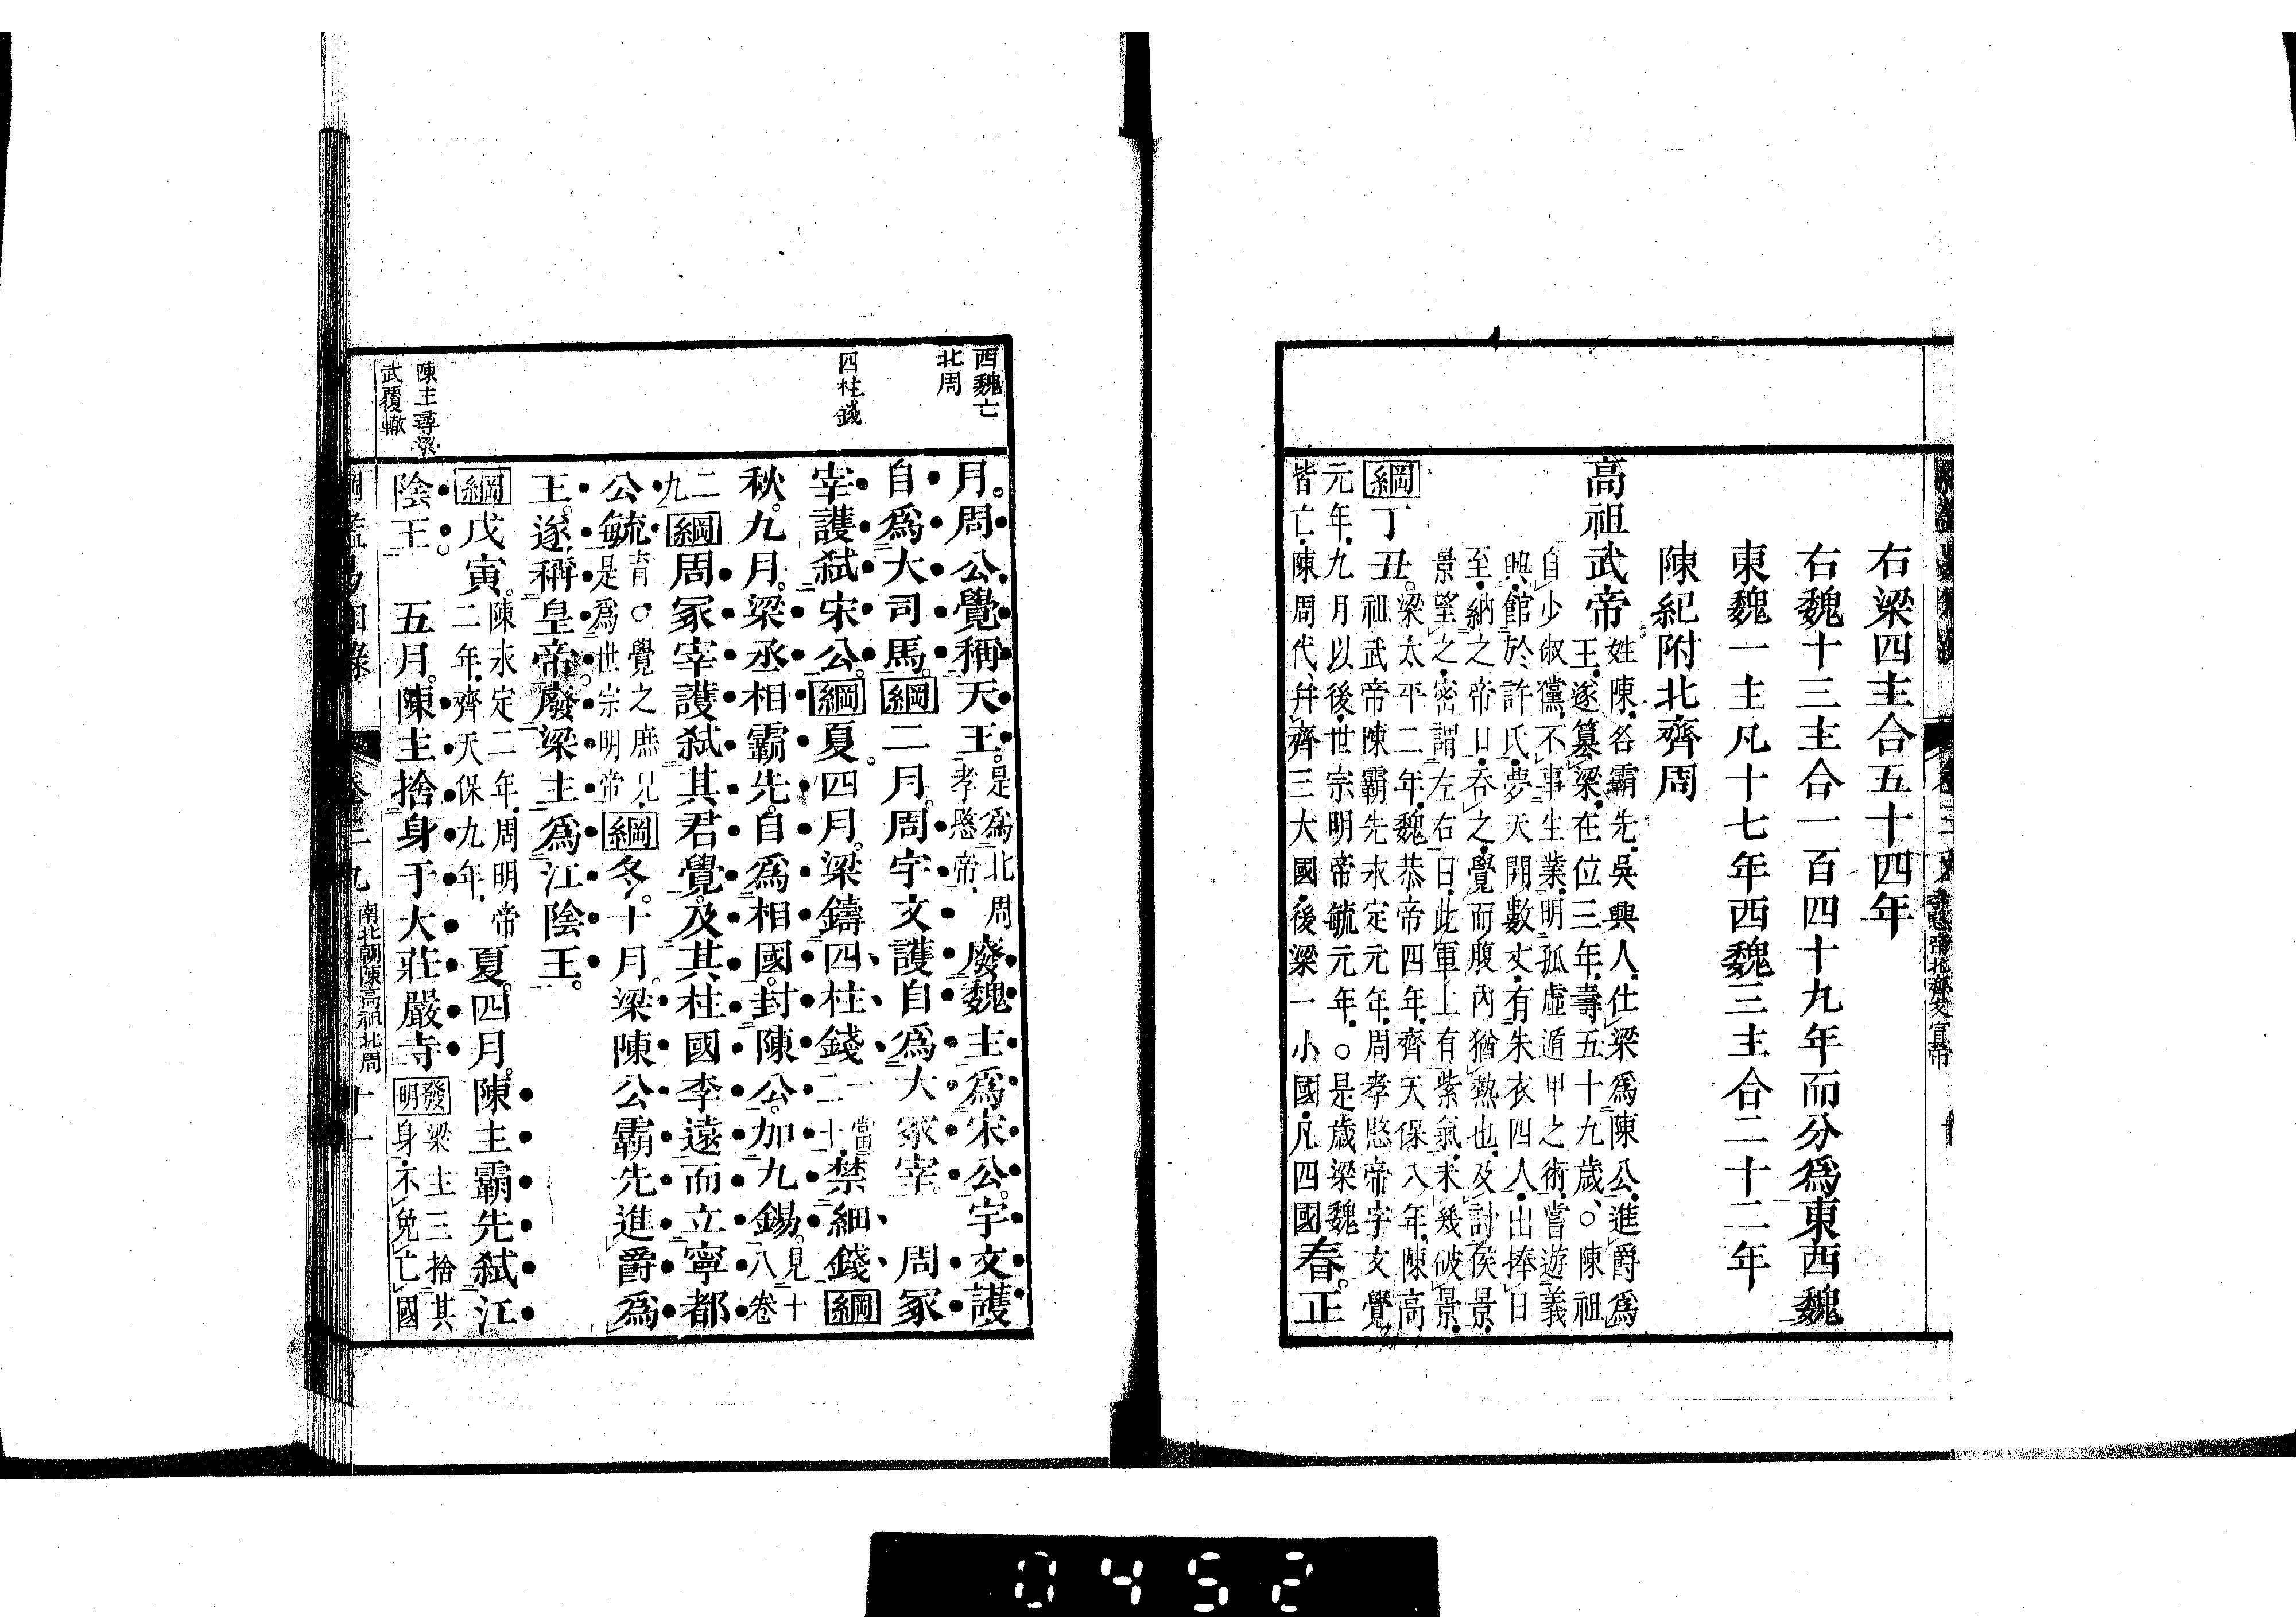 右梁四主合五十四年
右魏十三主合一百四十九年而分爲東西魏
東魏一主凡十七年西魏三主合二十二年
陳紀附北齊周
高祖武帝
姓陳名霸先吳興人仕梁爲陳公進爵爲
王遂篡梁在位三年壽五十九歲○陳祖
自少俶儻不事生業明孤虛遁甲之術嘗遊義
興館於許氏夢天開數丈有朱衣四人捧日
至納之帝口吞之覺而腹內猶熱也及討侯景
景望之密謂左右曰此軍上有紫氣未幾破景
綱丁丑
梁太平二年魏恭帝四年齊天保八年陳高
祖武帝陳霸先永定元年周孝愍帝宇文覺
元年九月以後世宗明帝毓元年○是歲梁魏
皆亡陳周代幷齊三大國後梁一小國凡四國
春正
西魏亡
北周
四柱錢
陳主尋梁
武覆轍
月周公覺稱天王
是爲北周
孝愍帝
廢魏主爲宋公宇文護
自爲大司馬綱二月周宇文護自爲大冢宰 周冢
宰護弑宋公綱夏四月梁鑄四柱錢
一當
二十
禁細錢綱
秋九月梁丞相霸先自爲相國封陳公加九錫
見十
八卷
二
九
綱周冢宰護弑其君覺及其柱國李遠而立寧都
公毓
育○覺之庶兄
是爲世宗明帝
綱冬十月梁陳公霸先進爵爲
王遂稱皇帝廢梁主爲江陰王
綱戊寅
陳永定二年周明帝
二年齊天保九年
夏四月陳主霸先弑江
陰王 五月陳主捨身于大莊嚴寺
發明
梁主三捨其
身不免亡國
南北朝陳高祖北周 十一